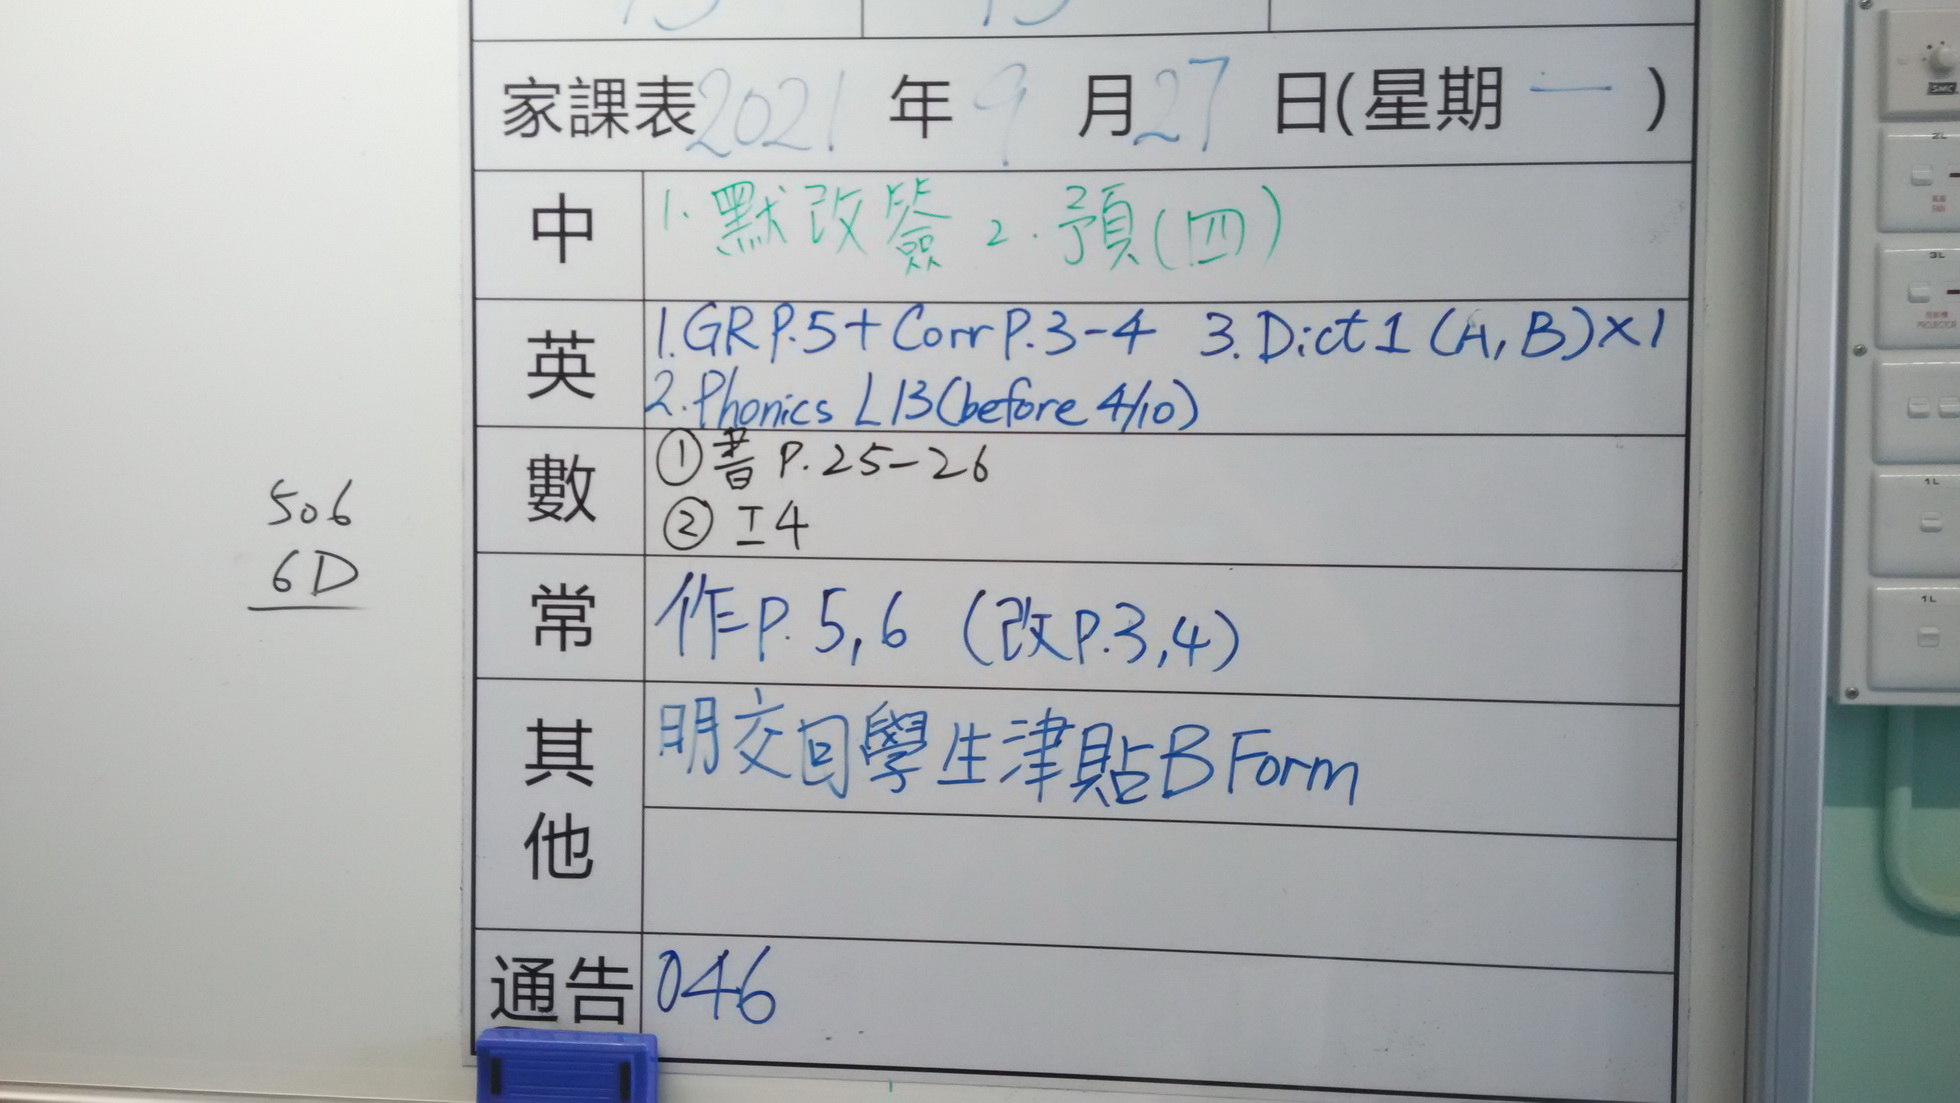 家課表 2021 年 9 月 27 日(星期 一 )
中 1. 默改簽 2. 預(四)
英 1. GR P.5 + Corr P.3-4 3. Dict 1 (A, B)×1
2. Phonics L13 (before 4/10)
數 ① 書 P. 25-26
② 工4
506
6D
常 作 P. 5, 6 (改 P.3, 4)
其他 明交回學生津貼B Form
通告 046
SMC
2L
3L
PROJECTOR
1L
1L